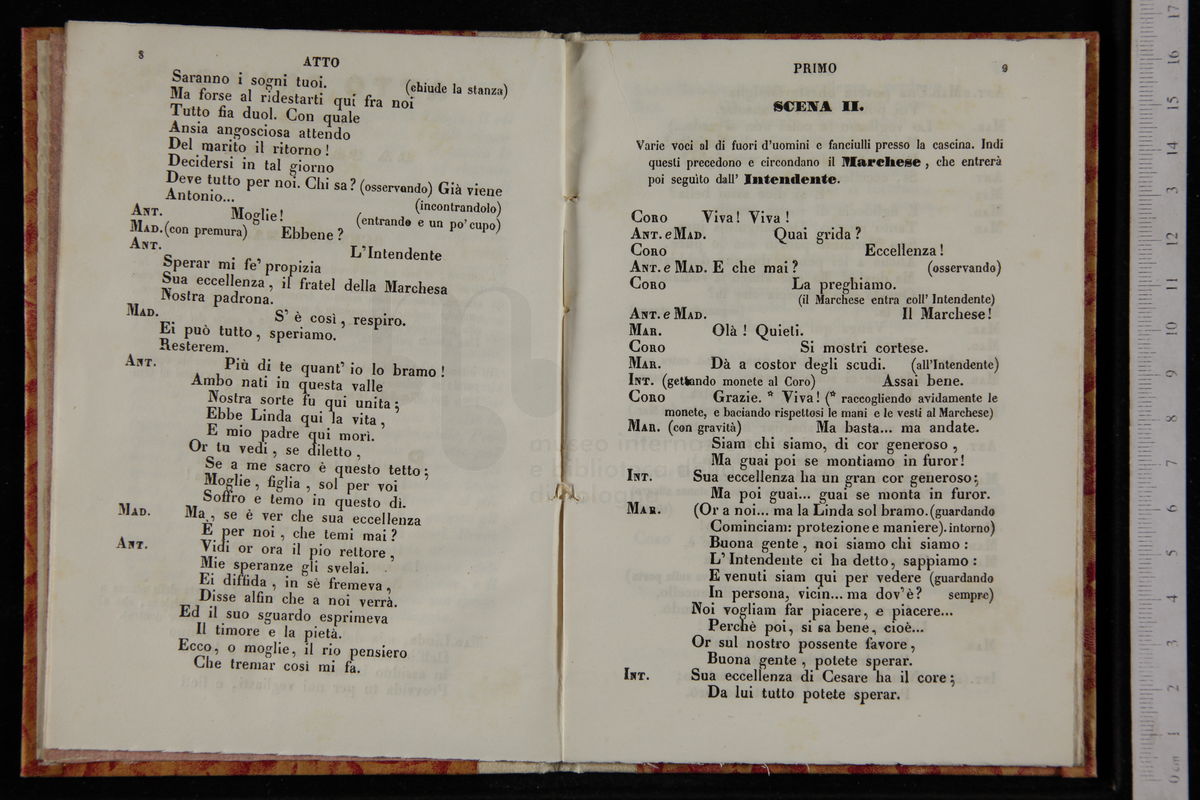 8
ATTO
Saranno i sogni tuoi. (chiude la stanza)
Ma forse al ridestarti qui fra noi
Tutto fia duol. Con quale
Ansia angosciosa attendo
Del marito il ritorno!
Decidersi in tal giorno
Deve tutto per noi. Chi sa? (osservando) Già viene
Antonio... (incontrandolo)
ANT. Moglie! (entrando e un po' cupo)
MAD. (con premura) Ebbene?
ANT. L'Intendente
Sperar mi fe' propizia
Sua eccellenza, il fratel della Marchesa
Nostra padrona.
MAD. S' è così, respiro.
Ei può tutto, speriamo.
Resterem.
ANT. Più di te quant' io lo bramo!
Ambo nati in questa valle
Nostra sorte fu qui unita;
Ebbe Linda qui la vita,
E mio padre qui morì.
Or tu vedi, se diletto,
Se a me sacro è questo tetto;
Moglie, figlia, sol per voi
Soffro e temo in questo dì.
MAD. Ma, se è ver che sua eccellenza
E per noi, che temi mai?
ANT. Vidi or ora il pio rettore,
Mie speranze gli svelai.
Ei diffida, in sè fremeva,
Disse alfin che a noi verrà.
Ed il suo sguardo esprimeva
Il timore e la pietà.
Ecco, o moglie, il rio pensiero
Che tremar così mi fa.
PRIMO
9
SCENA II.
Varie voci al di fuori d'uomini e fanciulli presso la cascina. Indi
questi precedono e circondano il Marchese, che entrerà
poi seguìto dall' Intendente.
CORO Viva! Viva!
ANT. e MAD. Quai grida?
CORO Eccellenza!
ANT. e MAD. E che mai? (osservando)
CORO La preghiamo.
(il Marchese entra coll' Intendente)
ANT. e MAD. Il Marchese!
MAR. Olà! Quieti.
CORO Si mostri cortese.
MAR. Dà a costor degli scudi. (all'Intendente)
INT. (gettando monete al Coro) Assai bene.
CORO Grazie. * Viva! (* raccogliendo avidamente le
monete, e baciando rispettosi le mani e le vesti al Marchese)
MAR. (con gravità) Ma basta... ma andate.
Siam chi siamo, di cor generoso,
Ma guai poi se montiamo in furor!
INT. Sua eccellenza ha un gran cor generoso;
Ma poi guai... guai se monta in furor.
MAR. (Or a noi... ma la Linda sol bramo. (guardando
Cominciam: protezione e maniere). intorno)
Buona gente, noi siamo chi siamo:
L' Intendente ci ha detto, sappiamo:
E venuti siam qui per vedere (guardando
In persona, vicin... ma dov'è? sempre)
Noi vogliam far piacere, e piacere...
Perchè poi, si sa bene, cioè...
Or sul nostro possente favore,
Buona gente, potete sperar.
INT. Sua eccellenza di Cesare ha il core;
Da lui tutto potete sperar.